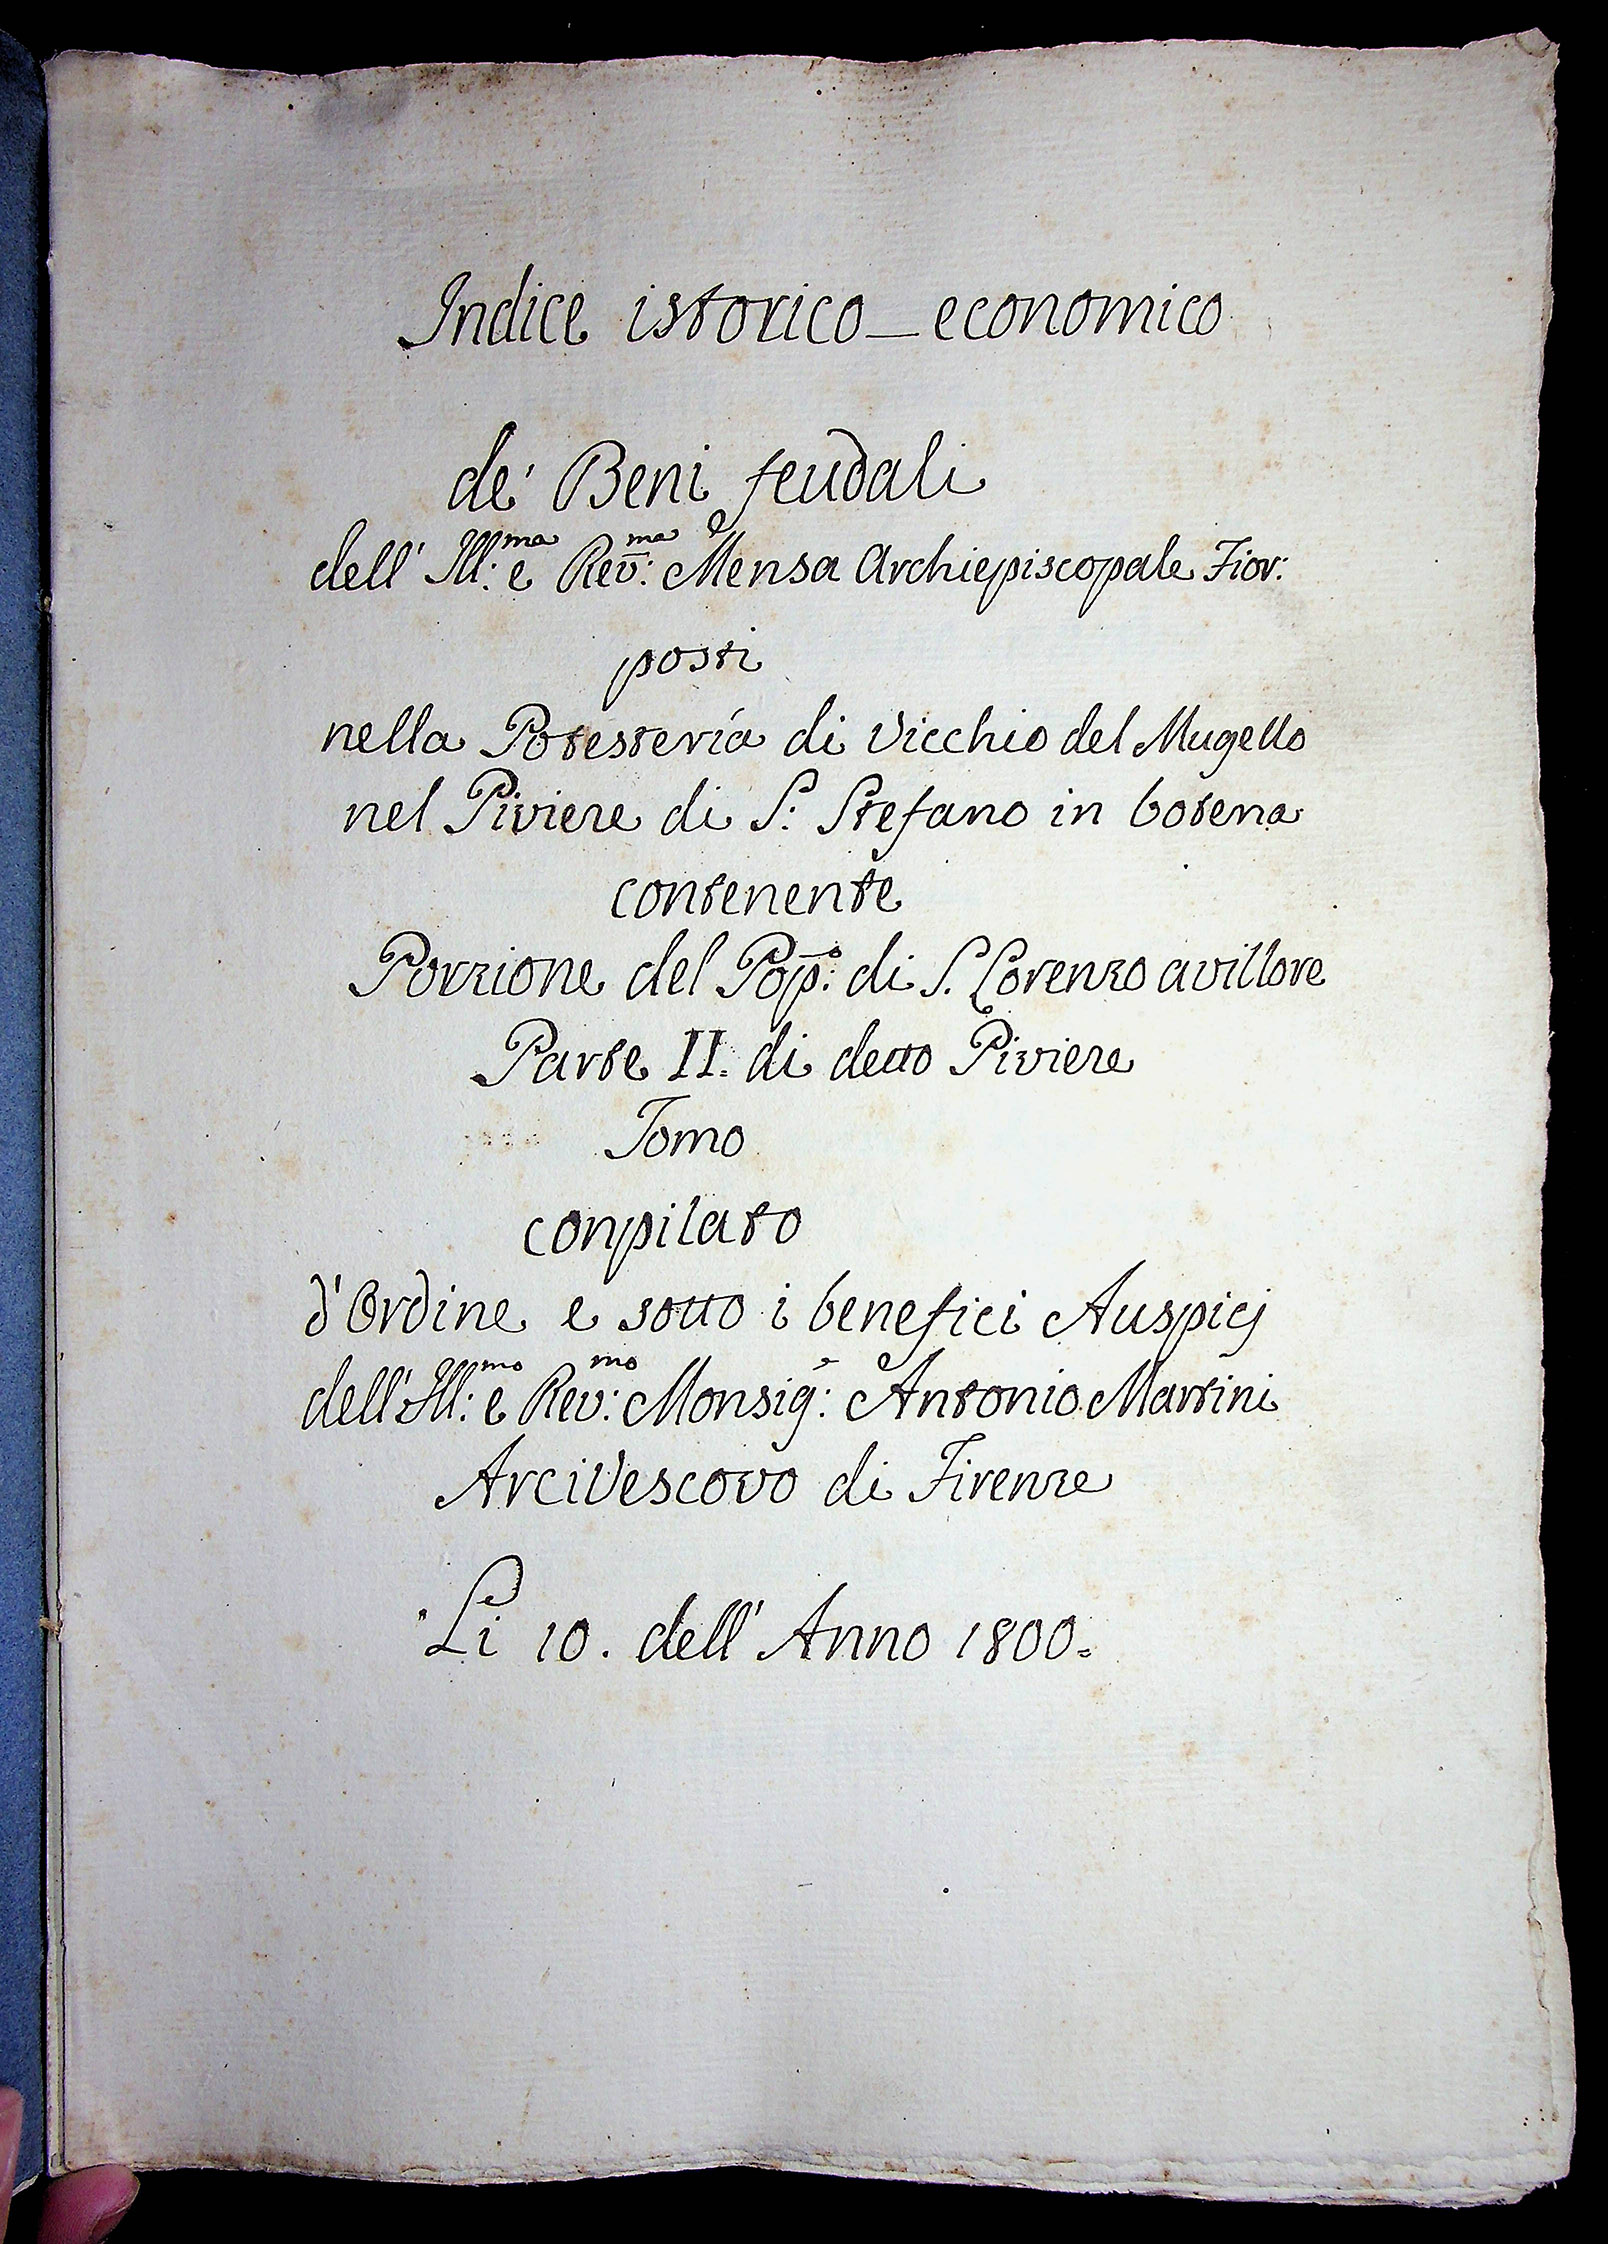 Indice istorico_economico
de' Beni feudali
dell' Ill:ma e Rev:ma Mensa Archiepiscopale Fior:
posti
nella Potesteria di Vicchio del Mugello
nel Piviere di S: Stefano in botena
contenente
Porzione del Pop:o di S. Lorenzo a villore
Parte II. di detto Piviere
Tomo
conpilato
d'Ordine e sotto i benefici Auspicj
dell' Ill:mo e Rev:mo Monsig:e Antonio Martini
ArciVescovo di Firenze
Li 10. dell' Anno 1800.